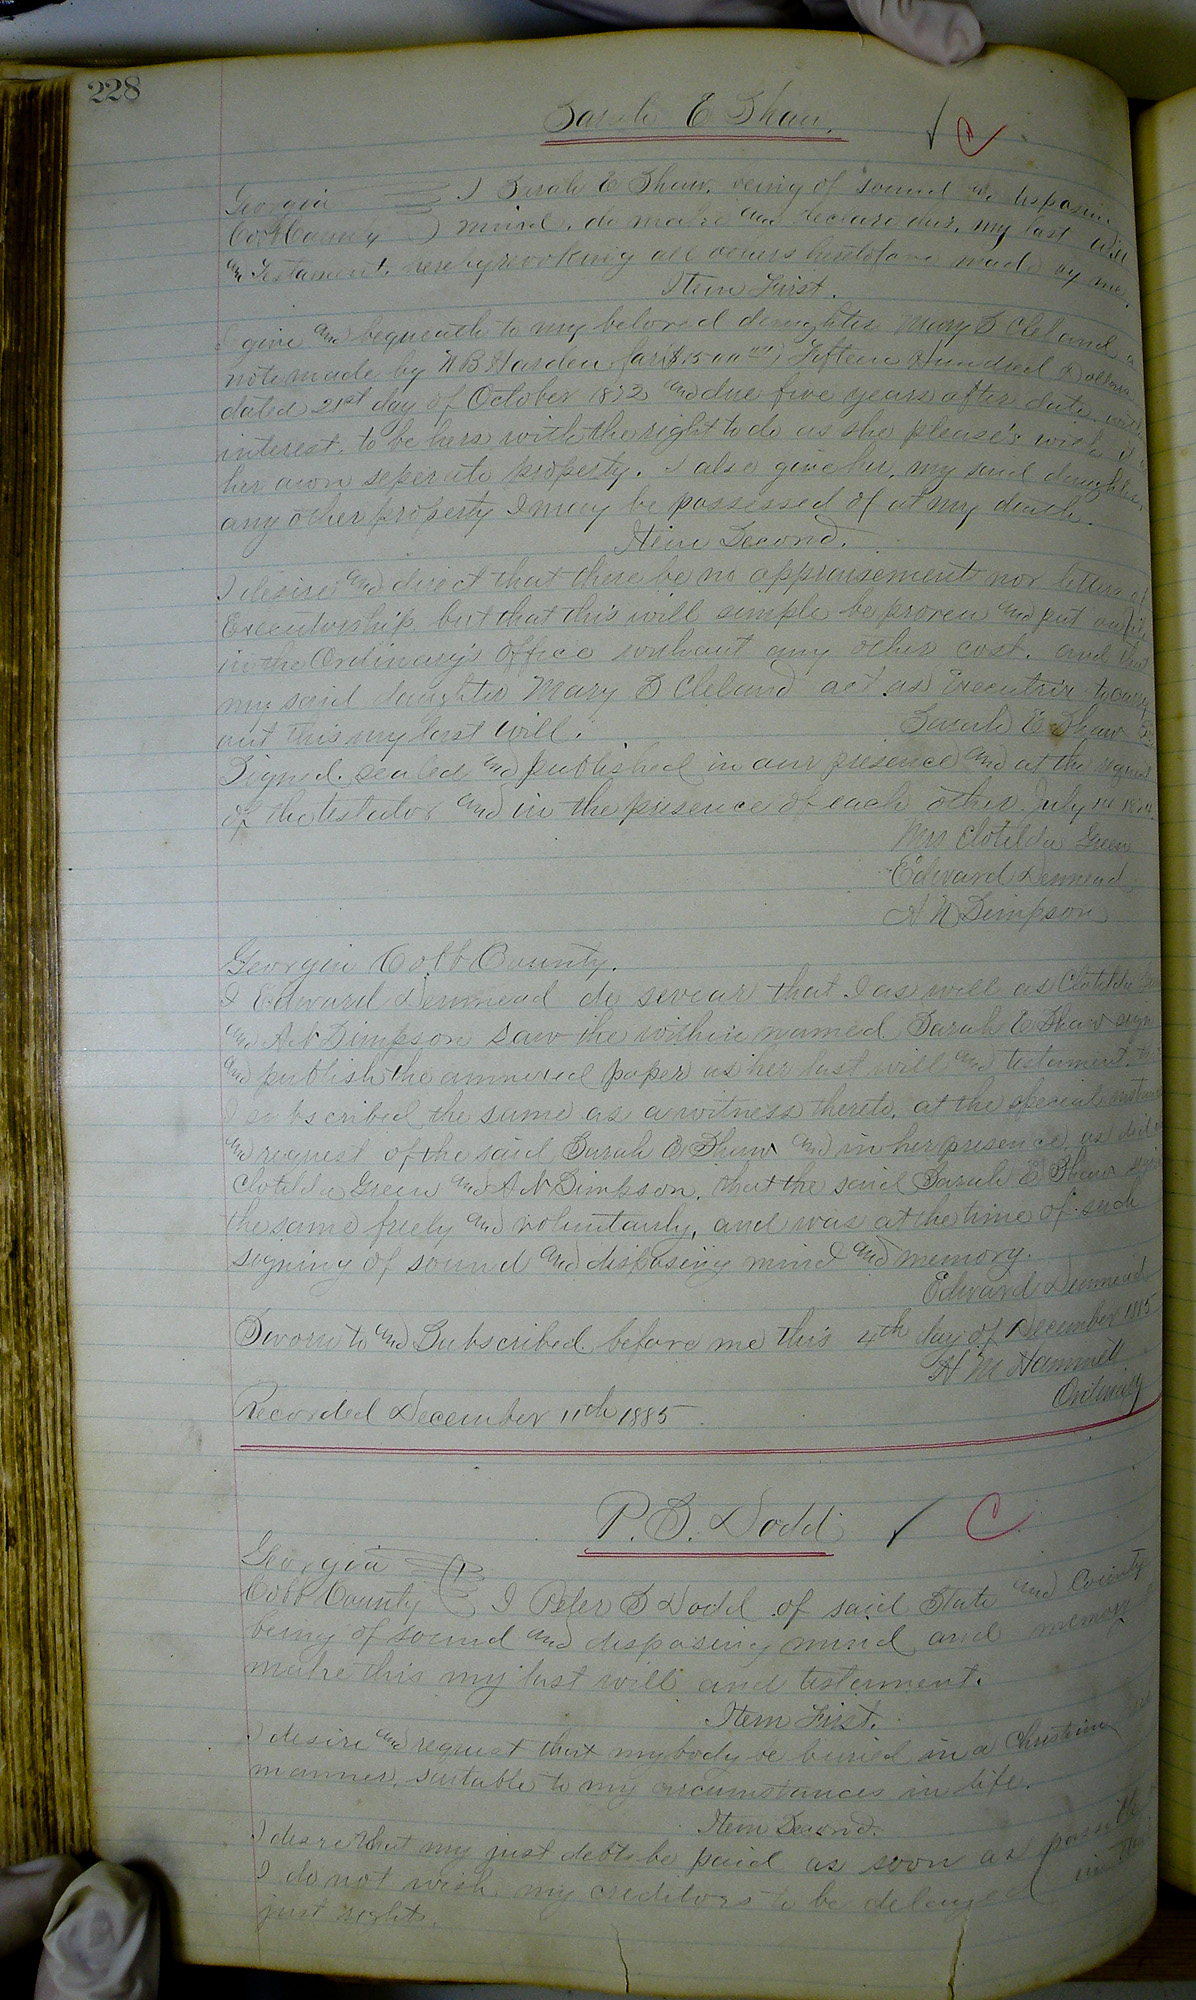 228
Sarah E Shaw.
Georgia
Cobb County ) I Sarah E Shaw, being of sound and disposing
mind, do make and declare this, my last Will
and Testament, hereby revoking all others heretofore made by me.
Item First.
I give and bequeath to my beloved daughter Mary S Cleland a
note made by N B Harden for ($1500 00/100) Fifteen Hundred Dollars
dated 21st day of October 1872 and due five years after date with
interest, to be hers with the right to do as she please's with it
her own seperate property. I also give her, my said daughter
any other property I may be possessed of at my death.
Item Second.
I desire and direct that there be no appraisement nor letters of
Executorship, but that this will simple be proven and put on file
in the Ordinary's office without any other cost. and that
my said daughter Mary S Cleland act as Executrix to carry
out this my last will.
Sarah E Shaw
Signed, sealed and published in our presence and at the request
of the testator and in the presence of each other July 1st
Mrs Clotilda Green
Edward Denmead
A N Simpson
Georgia Cobb County.
I Edward Denmead do swear that I as will as Clotilda
and A N Simpson saw the within named Sarah E Shaw sign
and publish the annexed paper as her last will and testament, that
I subscribed the same as a witness thereto, at the special instance
and request of the said Sarah E Shaw and in her presence as did
Clotilda Green and A N Simpson, that the said Sarah E Shaw signed
the same freely and voluntarily, and was at the time of such
signing of sound and disposing mind and memory.
Edward Denmead
Sworn to and Subscribed before me this 4th day of December 1885
H M Hammett
Ordinary
Recorded December 11th 1885
P. S. Dodd
Georgia
Cobb County ) I Peter S Dodd of said State and County
being of sound and disposing mind and memory
make this my last will and testament.
Item First.
I desire and request that my body be buried in a Christian
manner, suitable to my circumstances in life.
Item Second.
I desire that my just debts be paid as soon as possible
I do not wish my creditors to be delayed in their
just rights.